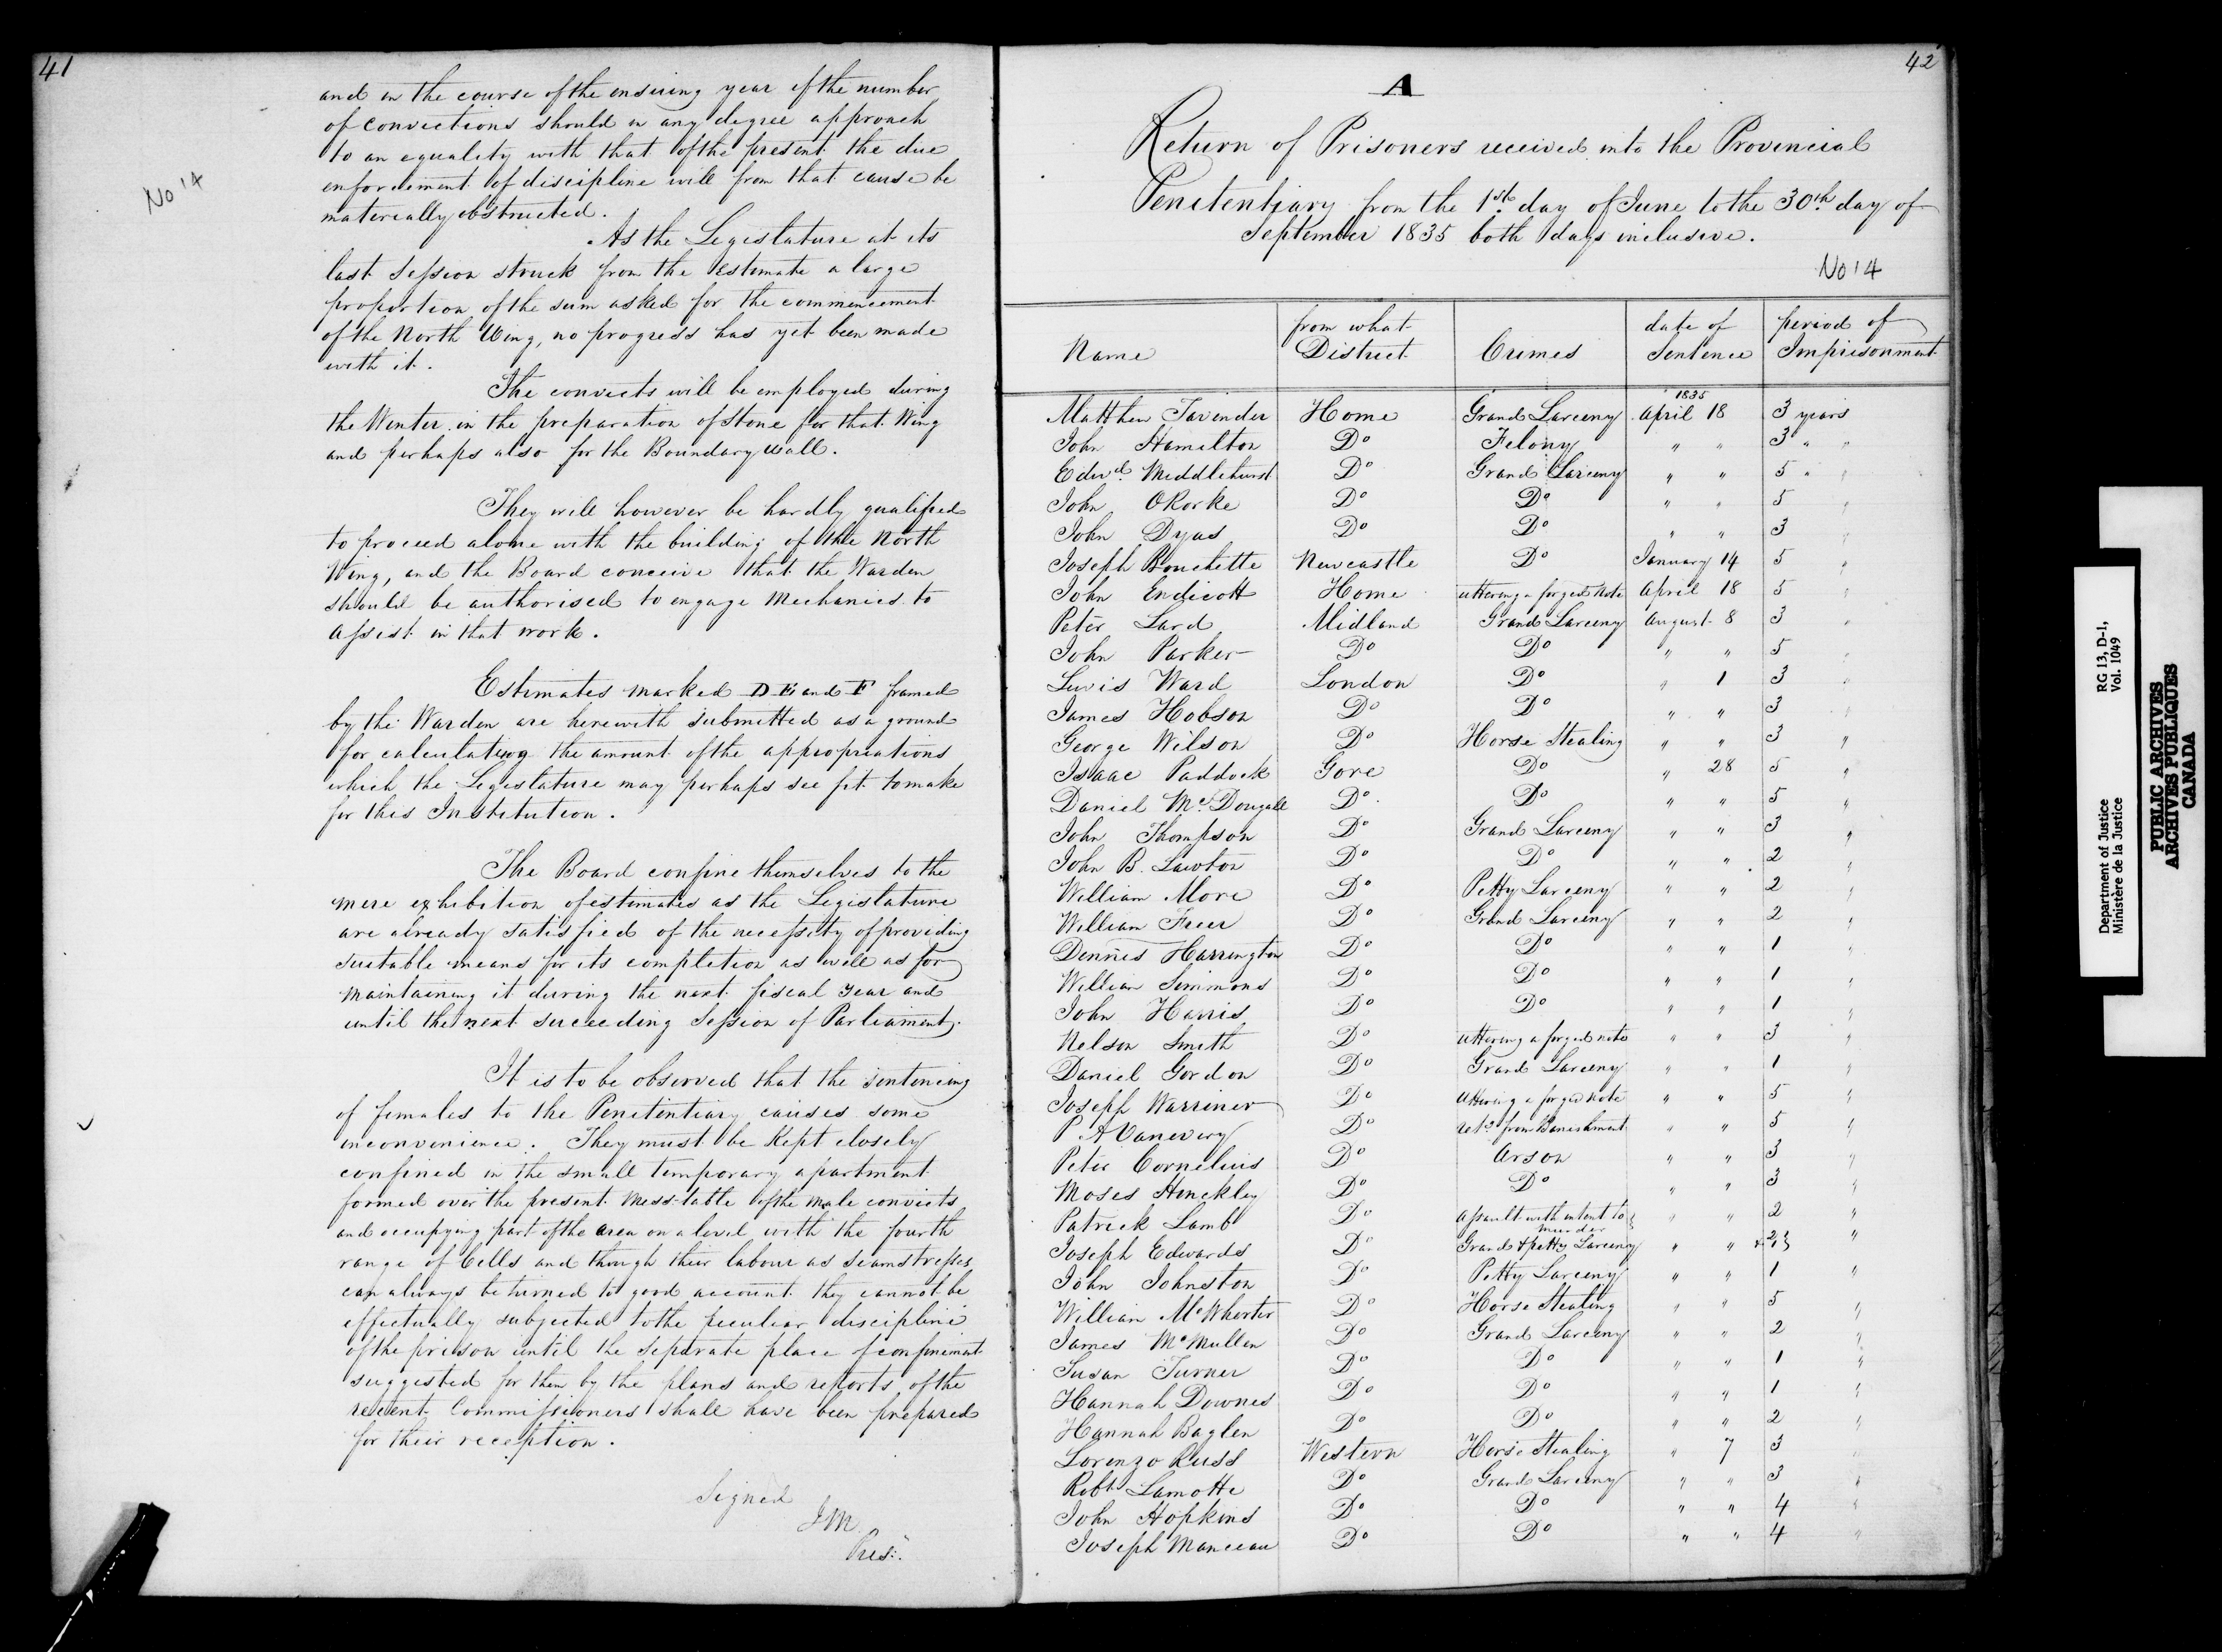 41
No 14
and in the course of the ensuing year if the number
of convictions should in any degree approach
to an equality with that of the present the due
enforcement of discipline will from that cause be
materially obstructed.
As the Legislature at its
last Session struck from the estimate a large
proportion of the sum asked for the commencement
of the North Wing, no progress has yet been made
with it.
The convicts will be employed during
the Winter in the preparation of stone for that Wing
and perhaps also for the Boundary wall.
They will however be hardly qualified
to proceed alone with the building of the North
Wing, and the Board conceive that the Warden
should be authorised to engage Mechanics to
assist in that work.
Estimates marked D E and F framed
by the Warden are herewith submitted as a ground
for calculating the amount of the appropriations
which the Legislature may perhaps see fit to make
for this Institution.
The Board confine themselves to the
mere exhibition of estimates as the Legislature
are already satisfied of the necessity of providing
suitable means for its completion as well as for
maintaining it during the next fiscal year and
until the next succeeding Session of Parliament.
It is to be observed that the sentencing
of females to the Penitentiary causes some
inconvenience. They must be kept closely
confined in the small temporary apartment
formed over the present Mess-table of the male convicts
and occupying part of the area on a level with the fourth
range of Cells and though their labour as Seamstresses
can always be turned to good account they cannot be
effectually subjected to the peculiar discipline
of the prison until the separate place of confinement
suggested for them by the plans and reports of the
recent Commissioners shall have been prepared
for their reception.
Signed
J M
Pres:.
42
A
Return of Prisoners received into the Provincial
Penitentiary from the 1st. day of June to the 30th day of
September 1835 both days inclusive.
No 14
Name from what District Crimes date of Sentence period of Imprisonment
1835
Matthew Tavender Home Grand Larceny April 18 3 years
John Hamilton Do Felony " " 3 " "
Edwd. Middlehurst Do Grand Larceny " " 5 " "
John ORorke Do Do " " 5 "
John Dyas Do Do " " 3 "
Joseph Bouchette Newcastle Do January 14 5 "
John Endicott Home uttering a forged Note April 18 5 "
Peter Lard Midland Grand Larceny August 8 3 "
John Parker Do Do " " 5 "
Lewis Ward London Do " 1 3 "
James Hobson Do Do " " 3 "
George Wilson Do Horse Stealing " " 3 "
Isaac Paddock Gore Do " 28 5 "
Daniel McDougall Do Do " " 5 "
John Thompson Do Grand Larceny " " 3 "
John B. Lawton Do Do " " 2 "
William More Do Petty Larceny " " 2 "
William Freer Do Grand Larceny " " 2 "
Dennis Harrington Do Do " " 1 "
William Simmons Do Do " " 1 "
John Harris Do Do " " 1 "
Nelson Smith Do uttering a forged note " " 3 "
Daniel Gordon Do Grand Larceny " " 1 "
Joseph Warriner Do uttering a forged note " " 5 "
P A Vanevery Do retd from Banishment " " 5 "
Peter Cornelius Do Arson " " 3 "
Moses Hinckley Do Do " " 3 "
Patrick Lamb Do assault with intent to murder " " 2 "
Joseph Edwards Do Grand & petty Larceny " " "
John Johnston Do Petty Larceny " " 1 "
William McWhorter Do Horse Stealing " " 5 "
James McMullen Do Grand Larceny " " 2 "
Susan Turner Do Do " " 1 "
Hannah Downes Do Do " " 1 "
Hannah Baglen Do Do " " 2 "
Lorenzo Russ Western Horse Stealing " 7 3 "
Robt Lamotte Do Grand Larceny " " 3 "
John Hopkins Do Do " " 4 "
Joseph Manceau Do Do " " 4 "
Department of Justice RG 13, D-1,
Ministère de la Justice Vol. 1049
PUBLIC ARCHIVES
ARCHIVES PUBLIQUES
CANADA